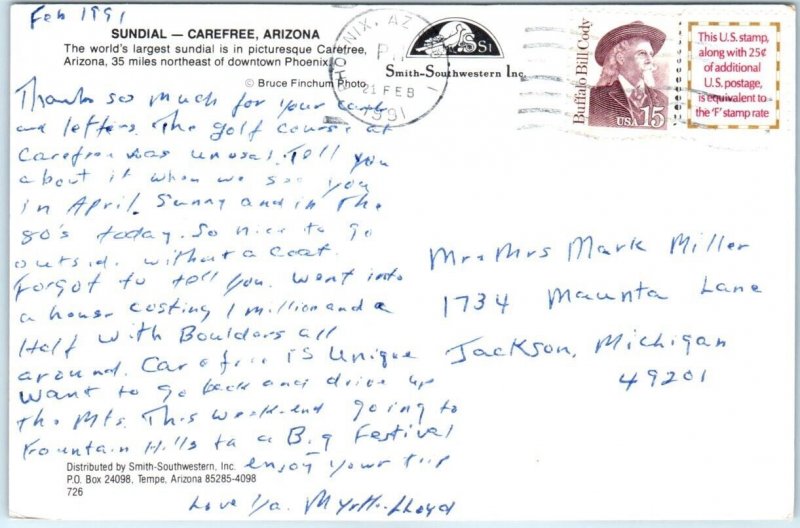 Feb 1991
SUNDIAL — CAREFREE, ARIZONA
The world's largest sundial is in picturesque Carefree,
Arizona, 35 miles northeast of downtown Phoenix.
© Bruce Finchum Photo
PHOENIX, AZ
PM
21 FEB
1991
SSI
Smith-Southwestern Inc.
Buffalo Bill Cody
USA 15
This U.S. stamp,
along with 25¢
of additional
U.S. postage,
is equivalent to
the 'F' stamp rate
Thanks so much for your card
and letters. The golf course at
Carefree was unusal. Tell you
about it when we see you
in April. Sunny and in the
80's today. So nice to go
outside without a coat.
Forgot to tell you. Went into
a house costing 1 million and a
Half with Boulders all
around. Carefree is Unique
Want to go back and drive up
the Mts. This weekend going to
Fountain Hills to a Big Festival
enjoy your trip
Love Ya. Myrtle-Lloyd
Mr & Mrs Mark Miller
1734 Maunta Lane
Jackson, Michigan
49201
Distributed by Smith-Southwestern, Inc.
P.O. Box 24098, Tempe, Arizona 85285-4098
726